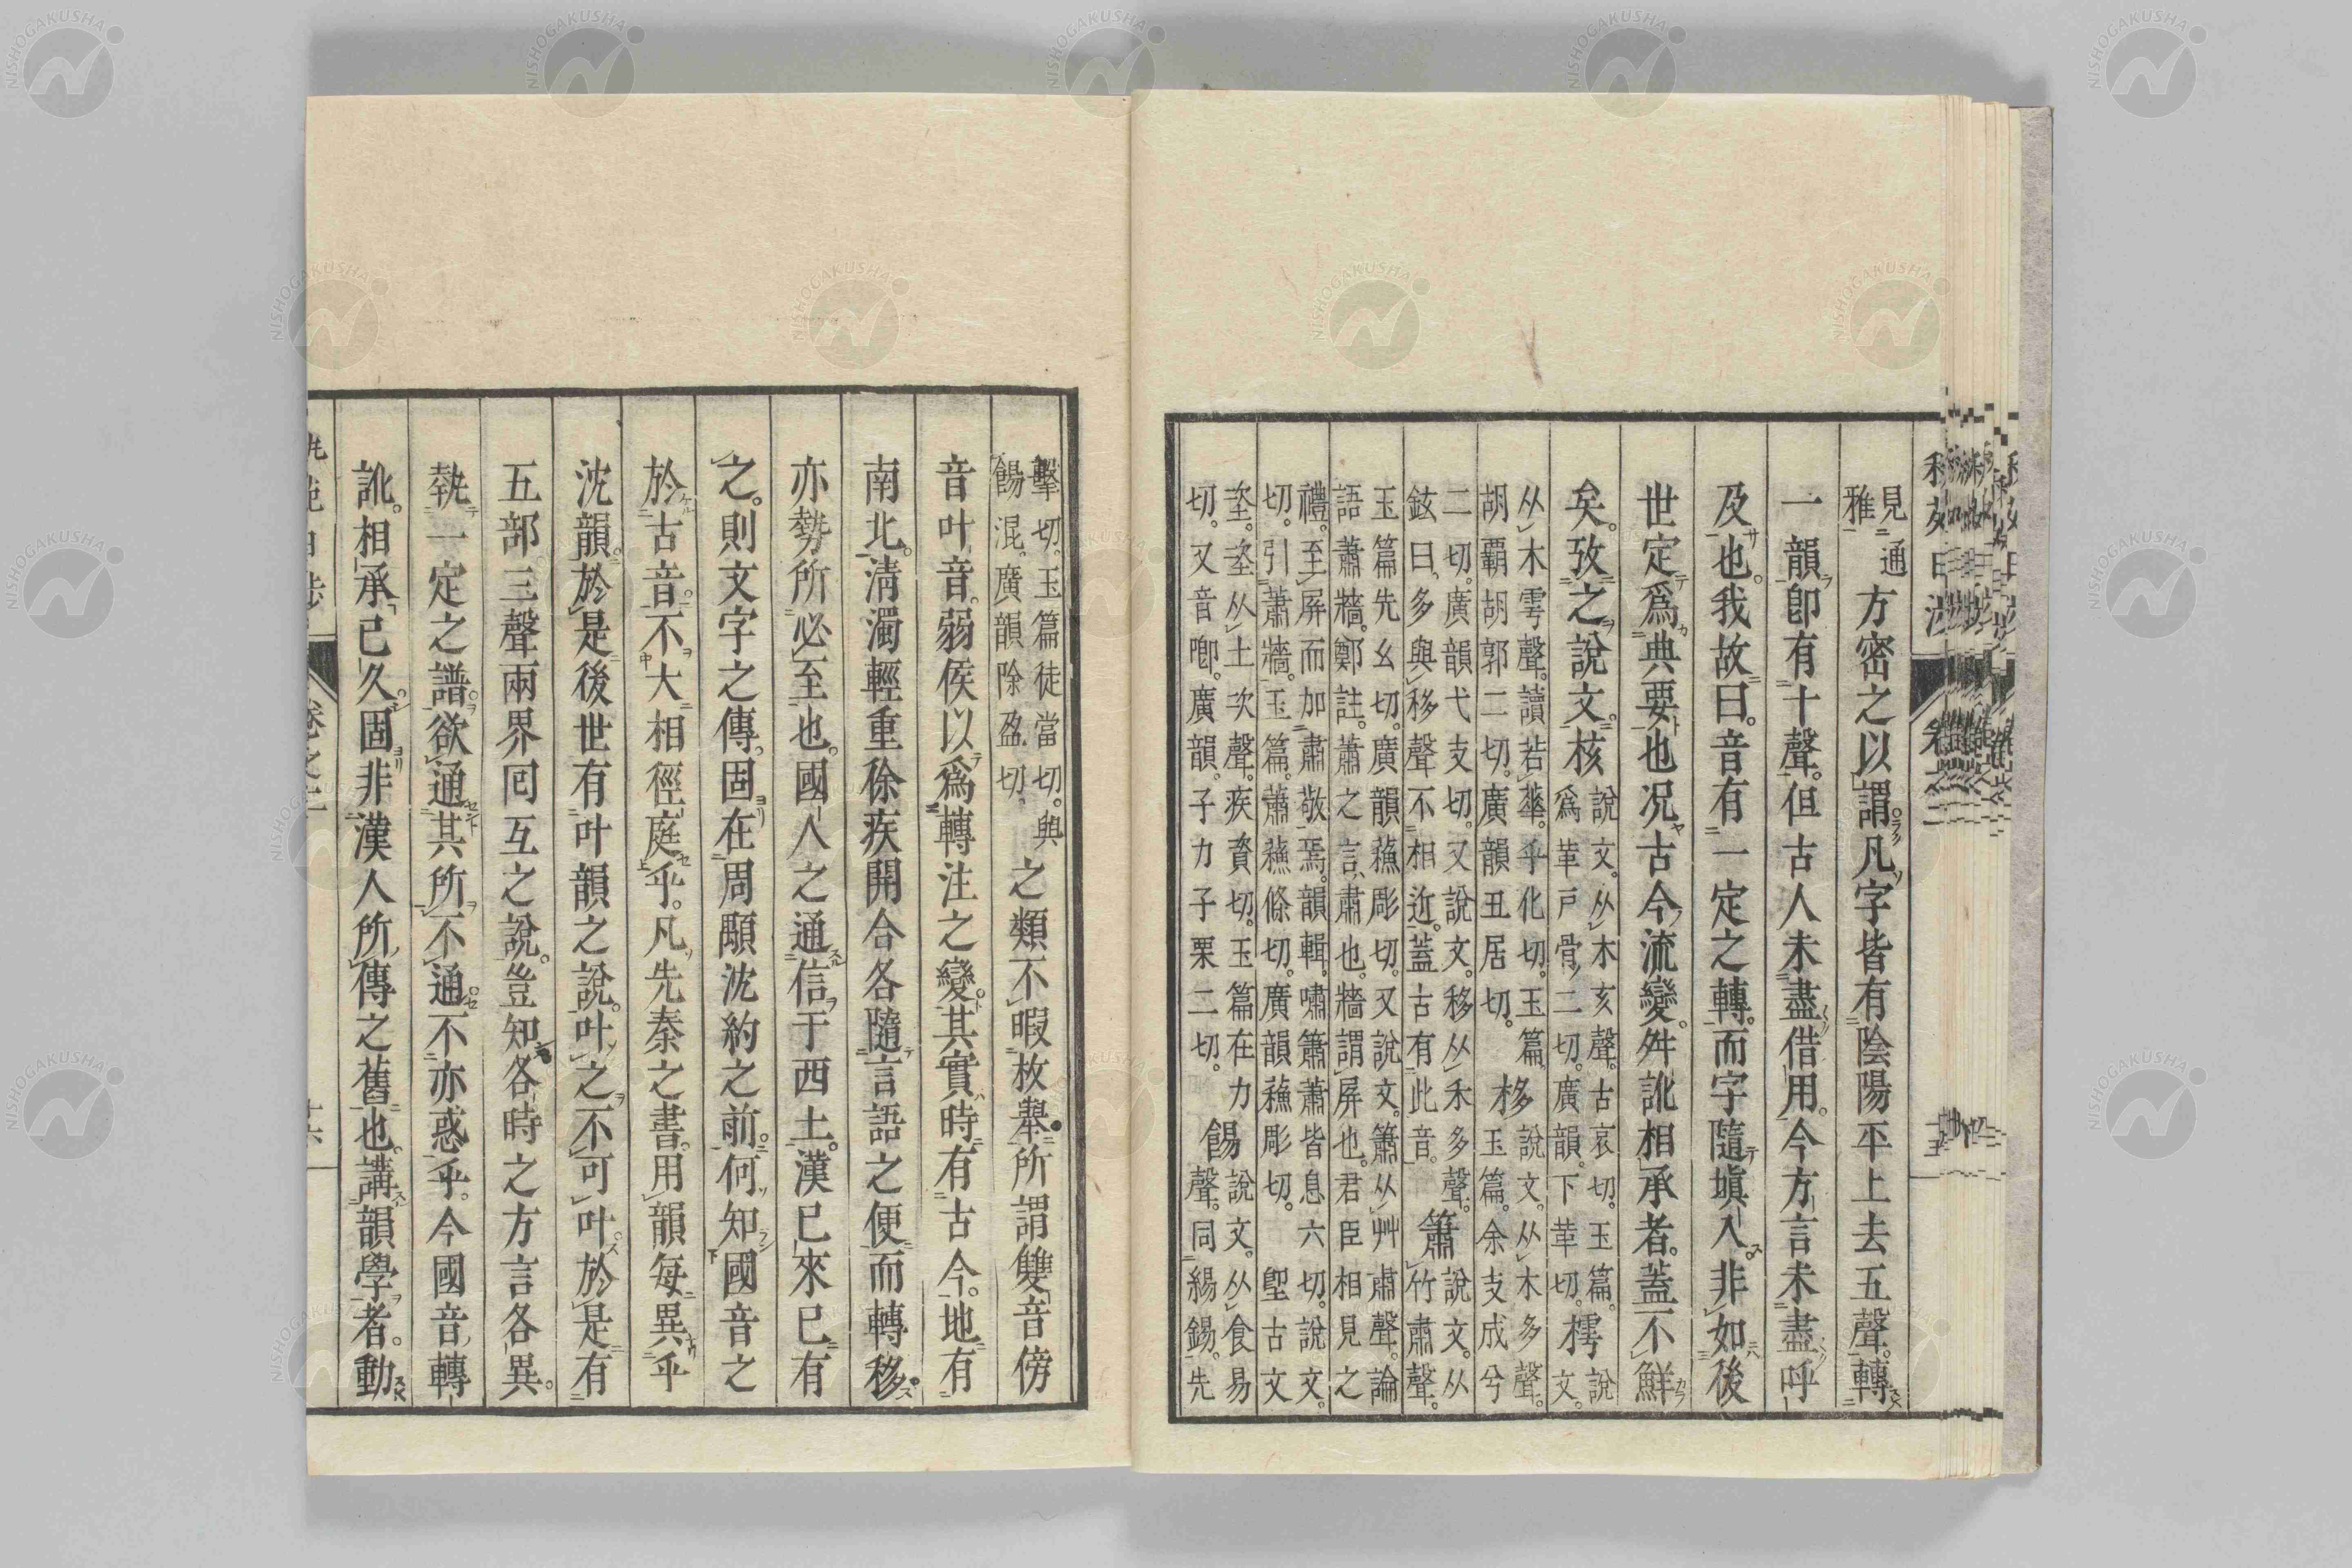 見通雅 方密之以謂凡字皆有陰陽平上去五聲。轉
一韻卽有十聲。但古人未盡借用。今方言未盡呼
及也。我故曰。音有一定之轉。而字隨塡入。非如後
世定爲典要也况古今流變。舛訛相承者。蓋不鮮
矣。攷之說文。核 說文。从木亥聲。古哀切。玉篇。爲革戸骨二切。廣韻。下革切。 樗 說文。
从木雩聲。讀若蕐。乎化切。玉篇。胡霸胡郭二切。廣韻丑居切。 栘 說文。从木多聲。玉篇。余支成兮
二切。廣韻弋支切。又說文。移从禾多聲。鉉曰。多與移聲不相近。蓋古有此音。 簫 說文。从竹肅聲。
玉篇先幺切。廣韻蘓彫切。又說文。簫从艸肅聲。論語蕭牆。鄭註。蕭之言、肅也。牆謂屏也。君臣相見之
禮。至屏而加肅敬焉。韻輯。嘯簫蕭皆息六切。說文。切。引蕭牆。玉篇。蕭蘓條切。廣韻蘓彫切。 堲古文
垐。垐从土次聲。疾資切。玉篇在力切。又音喞。廣韻。子力子栗二切。 餳 說文。从食易聲。同緆錫。先
擊切。玉篇徒當切。與餳混。廣韻除盈切。 之類不暇枚舉。所謂雙音傍
音叶音。弱侯以爲轉注之變。其實時有古今。地有
南北。淸濁輕重徐疾開合各隨言語之便而轉移
亦勢所必至也。國人之通信于西土。漢已來已有
之。則文字之傳。固在周顒沈約之前。何知國音之
於古音。不大相徑庭乎。凡先秦之書。用韻每異乎
沈韻。於是後世有叶韻之說。叶之不可叶。於是有
五部三聲兩界囘互之說。豈知各時之方言各異。
執一定之譜。欲通其所不通。不亦惑乎。今國音轉
訛。相承已久。固非漢人所傳之舊也。講韻學者。動